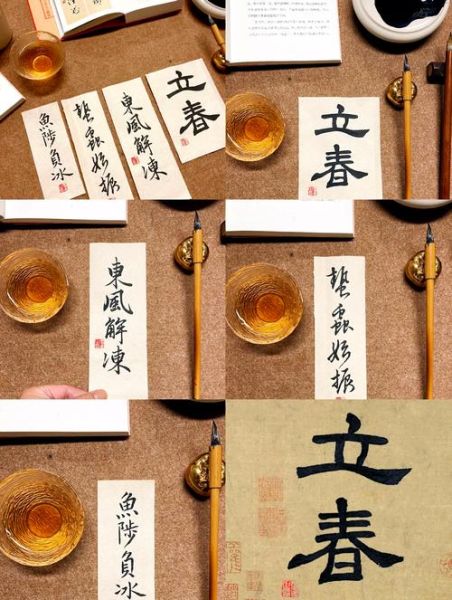 立春
東風解凍
蟄蟲始振
魚陟負冰
立春
東風解凍
蟄蟲始振
魚陟負冰
立春